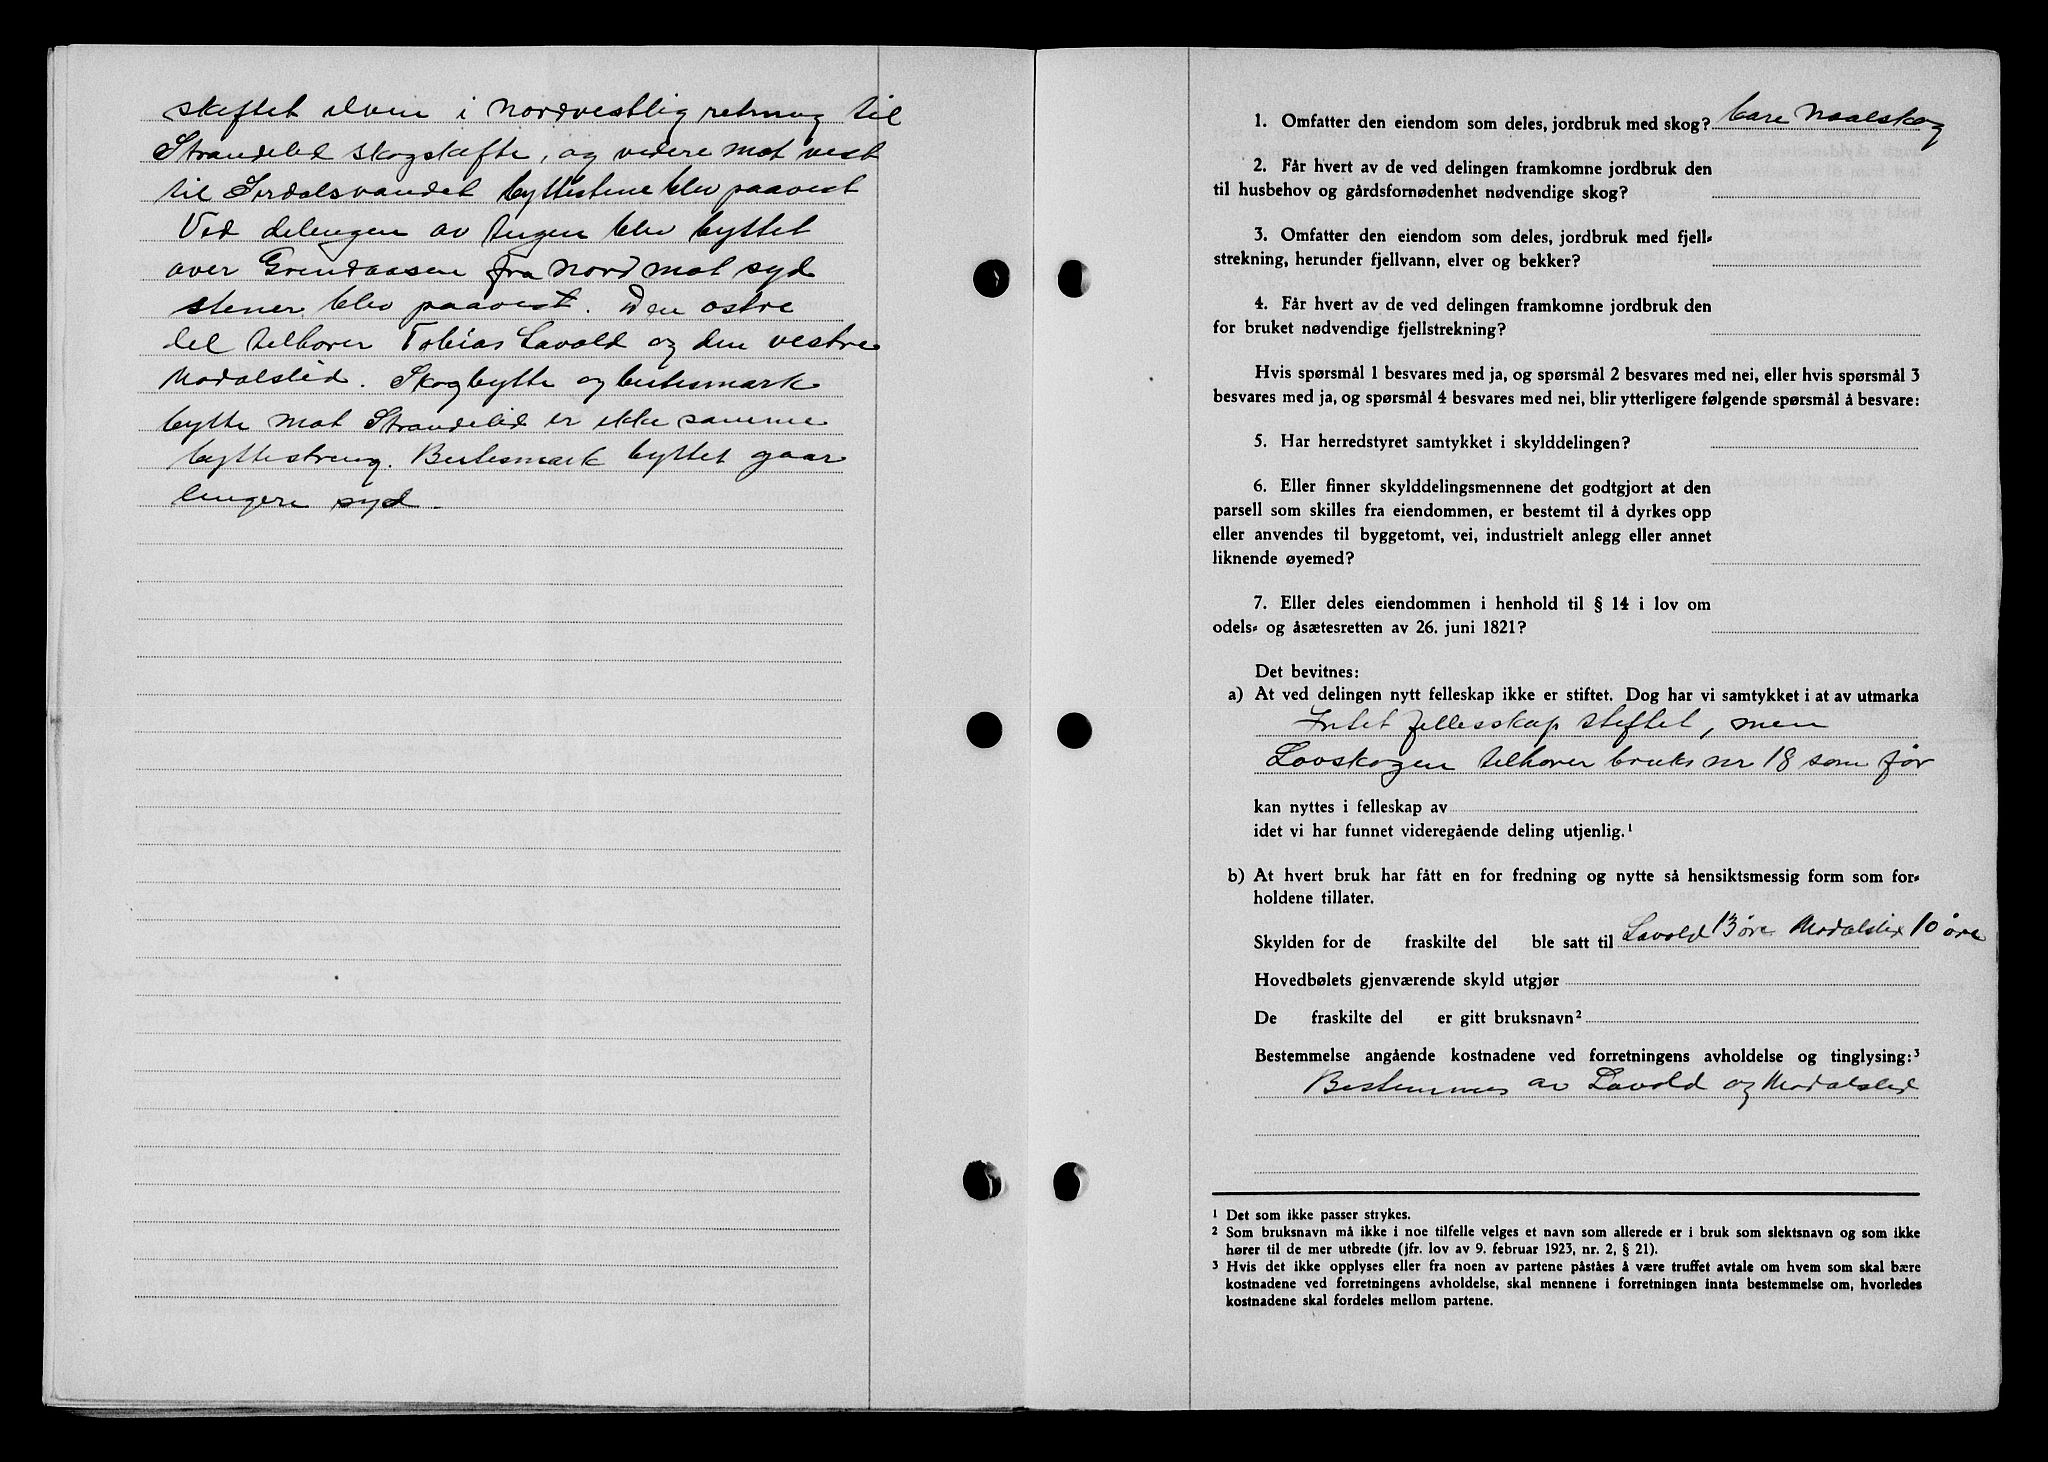 skiftet elven i nordvestlig retning til
Strandelid skogskifte, og videre mot vest
til Sirdalsvandet byttestene blev paavest
Ved delingen av teigen blev byttet
over Grendaasen fra nord mot syd
stener blev paavest. Den østre
del tilhører Tobias Lavold og den vestre
Modalslid. Skogbytte og beitesmark
bytte mot Strandelid er ikke samme
byttestreng. Beitesmark byttet gaar
lengere syd.
1. Omfatter den eiendom som deles, jordbruk med skog? bare Naalskog
2. Får hvert av de ved delingen framkomne jordbruk den
til husbehov og gårdsfornødenhet nødvendige skog?
3. Omfatter den eiendom som deles, jordbruk med fjell-
strekning, herunder fjellvann, elver og bekker?
4. Får hvert av de ved delingen framkomne jordbruk den
for bruket nødvendige fjellstrekning?
Hvis spørsmål 1 besvares med ja, og spørsmål 2 besvares med nei, eller hvis spørsmål 3
besvares med ja, og spørsmål 4 besvares med nei, blir ytterligere følgende spørsmål å besvare:
5. Har herredstyret samtykket i skylddelingen?
6. Eller finner skylddelingsmennene det godtgjort at den
parsell som skilles fra eiendommen, er bestemt til å dyrkes opp
eller anvendes til byggetomt, vei, industrielt anlegg eller annet
liknende øyemed?
7. Eller deles eiendommen i henhold til § 14 i lov om
odels- og åsætesretten av 26. juni 1821?
Det bevitnes:
a) At ved delingen nytt felleskap ikke er stiftet. Dog har vi samtykket i at av utmarka
Intet fellesskap stiftet, men
Lovskogen tilhører bruks nr 18 som før
kan nyttes i felleskap av
idet vi har funnet videregående deling utjenlig.¹
b) At hvert bruk har fått en for fredning og nytte så hensiktsmessig form som for-
holdene tillater.
Skylden for de fraskilte del ble satt til Lavold 13 øre Modalslid 10 øre
Hovedbølets gjenværende skyld utgjør
De fraskilte del er gitt bruksnavn²
Bestemmelse angående kostnadene ved forretningens avholdelse og tinglysing:³
Bestemmes av Lavold og Modalslid
¹ Det som ikke passer strykes.
² Som bruksnavn må ikke i noe tilfelle velges et navn som allerede er i bruk som slektsnavn og som ikke
hører til de mer utbredte (jfr. lov av 9. februar 1923, nr. 2, § 21).
³ Hvis det ikke opplyses eller fra noen av partene påståes å være truffet avtale om hvem som skal bære
kostnadene ved forretningens avholdelse, skal mennene i forretningen innta bestemmelse om, hvorledes
kostnadene skal fordeles mellom partene.